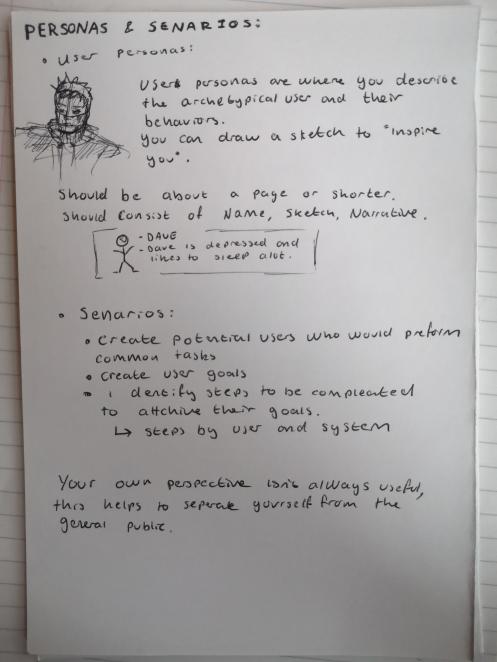 PERSONAS & SENARIOS:
• User Personas:
Users personas are where you describe
the archetypical user and their
behaviors.
You can draw a sketch to "Inspire
you".
Should be about a page or shorter.
Should Consist of Name, Sketch, Narrative.
- DAVE
- Dave is depressed and
likes to sleep alot.
• Senarios:
• Create potential users who would preform
common tasks
• Create user goals
• identify steps to be compleated
to attchive their goals.
↳ steps by user and system
Your own perspective isn't always useful,
this helps to seperate yourself from the
general public.